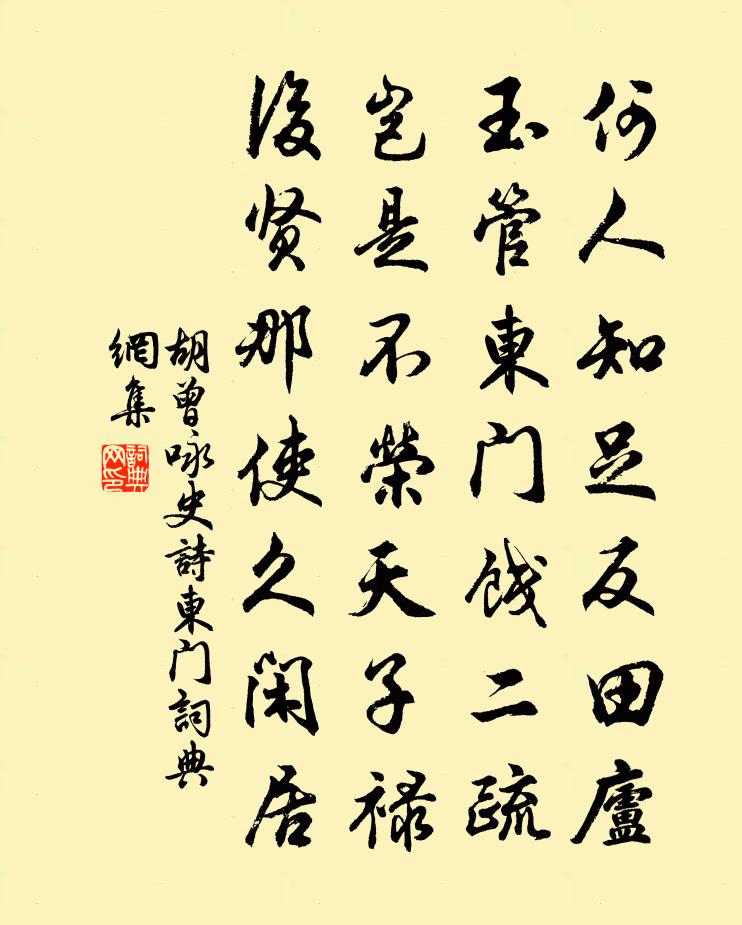 何人知足反田廬
玉管東门餞二疏
岂是不榮天子禄
後贤那使久闲居
胡曾咏史詩東门詞典
網集
詞典
网印